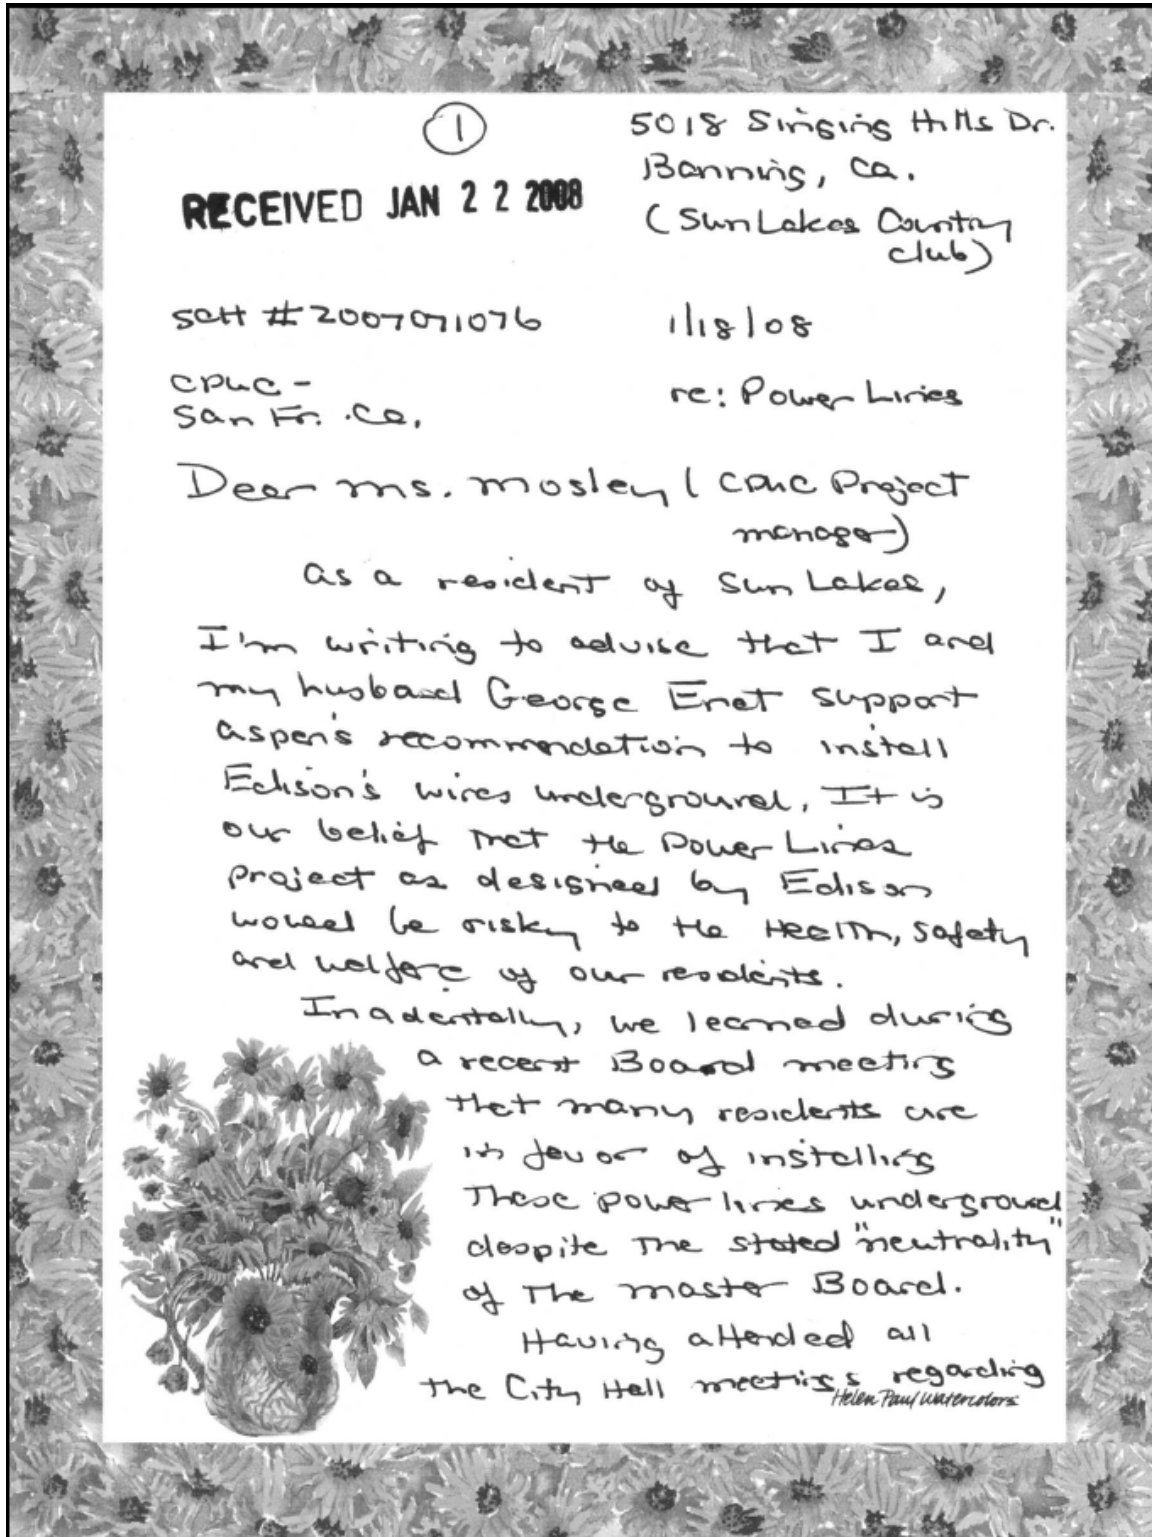 1
5018 Singing Hills Dr.
Banning, Ca.
(Sun Lakes Country
club)
RECEIVED JAN 2 2 2008
SCH # 2007071076
1/18/08
CPUC -
San Fr. Ca.
re: Power Lines
Dear Ms. Mosley (CPUC Project
manager)
As a resident of Sun Lakes,
I'm writing to advise that I and
my husband George Enet support
Aspen's recommendation to install
Edison's wires underground. It is
our belief that the Power Lines
project as designed by Edison
would be risky to the Health, Safety
and welfare of our residents.
Incidentally, we learned during
a recent Board meeting
that many residents are
in favor of installing
These power lines underground
despite the stated "neutrality"
of The Master Board.
Having attended all
the City Hall meetings regarding
Helen Paul Watercolors